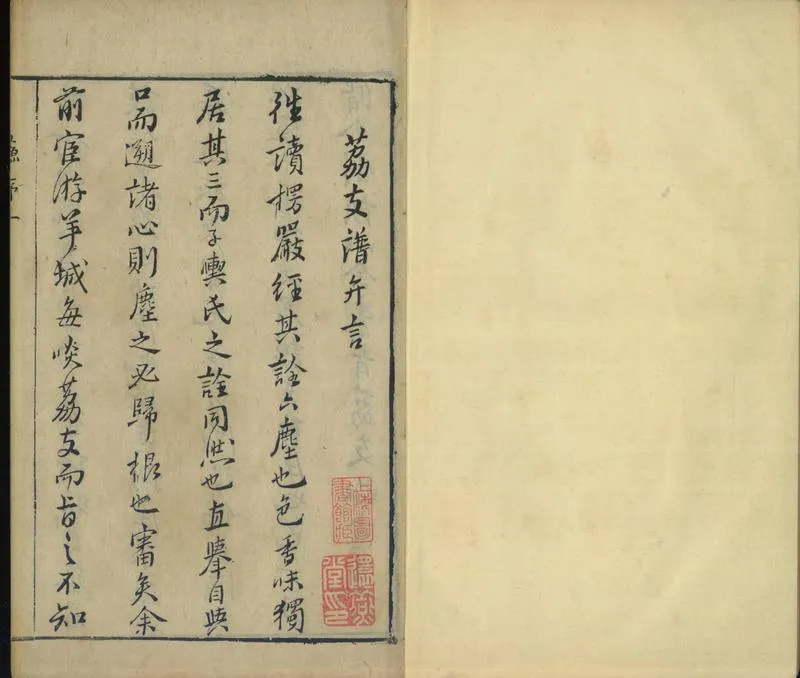 荔支譜弁言
往讀楞嚴經其詮六塵也色香味獨
居其三而子輿氏之詮同然也直舉自與
口而遡諸心則塵之必歸根也審矣余
前宦游羊城每啖荔支而旨之不知
序一
上海圖書館藏